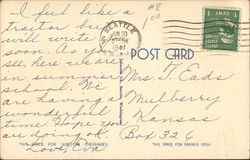 #8
100
I feel like a
traitor but
will write
soon. As you
see, here we are
in summer
school. We
are having a
wonderful
time. Hope you
are doing ok.
Love, Eva
SEATTLE
1947
1¢
POST CARD
Mrs. T. Eads
Mulberry
Kansas
Box 326
THIS SPACE FOR WRITING MESSAGES
THIS SPACE FOR ADDRESS ONLY